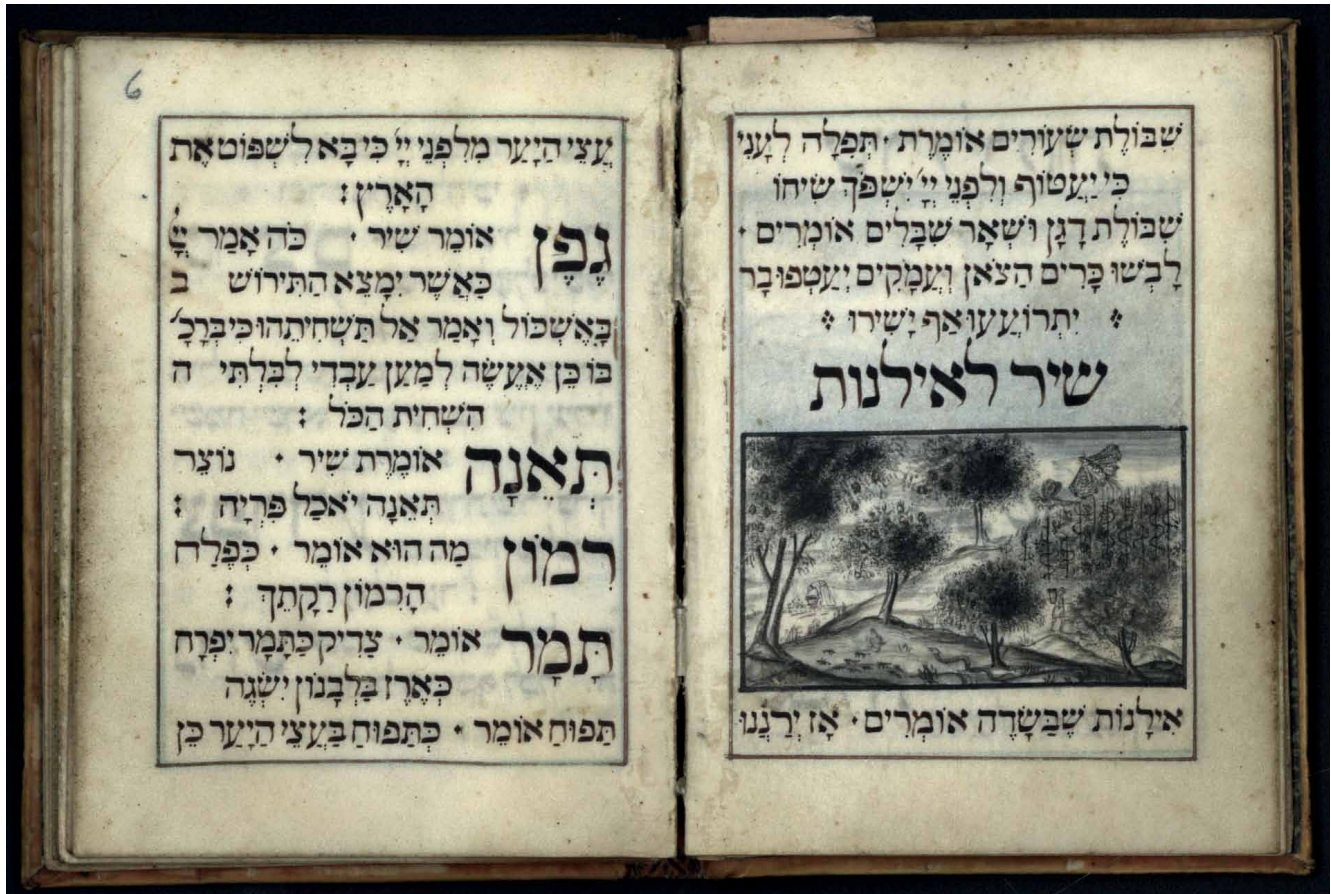 שִׁבּוֹלֶת שְׂעוֹרִים אוֹמֶרֶת · תְּפִלָּה לְעָנִי
כִי יַעֲטוֹף וְלִפְנֵי יְיָ יִשְׁפֹּךְ שִׂיחוֹ
שִׁבּוֹלֶת דָגָן וּשְׁאָר שִׁבָּלִים אוֹמְרִים ·
לָבְשׁוּ כָרִים הַצֹאן וְעֲמָקִים יַעַטְפוּ בָר
יִתְרוֹעֲעוּ אַף יָשִׁירוּ
שיר לאילנות
אִילָנוֹת שֶׁבַּשָׂדֶה אוֹמְרִים · אָז יְרַנְנוּ
6
עֲצֵי הַיָעַר מִלִפְנֵי יְיָ כִּי בָּא לִשְׁפּוֹט אֶת
הָאָרֶץ :
גֶפֶן אוֹמֵר שִׁיר · כֹּה אָמַר יְיָ
כַּאֲשֶׁר יִמָצֵא הַתִּירוֹשׁ ב
בָּאֶשְׁכּוֹל וְאָמַר אַל תַּשְׁחִיתֵהוּ כִּי בְרָכָ׳
בּוֹ כֵּן אֶעֱשֶׂה לְמַעַן עַבְדִי לְבִלְתִּי ה
הַשְׁחִית הַכֹּל :
תְּאֵנָה אוֹמֶרֶת שִׁיר · נוֹצֵר
תְּאֵנָה יֹאכַל פִּרְיָהּ :
רִמוֹן מַה הוּא אוֹמֵר · כְּפֶלַח
הָרִמוֹן רַקָתֵךְ :
תָּמָר אוֹמֵר · צַדִיק כַּתָּמָר יִפְרָח
כְּאֶרֶז בַּלְבָנוֹן יִשְׂגֶה
תַּפּוּחַ אוֹמֵר · כְּתַפּוּחַ בַּעֲצֵי הַיַעַר כֵּן